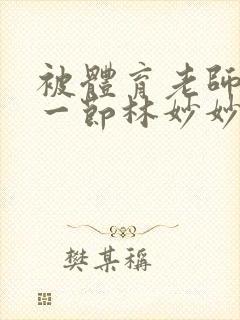 被體育老師
一節林妙妙
樊某稱